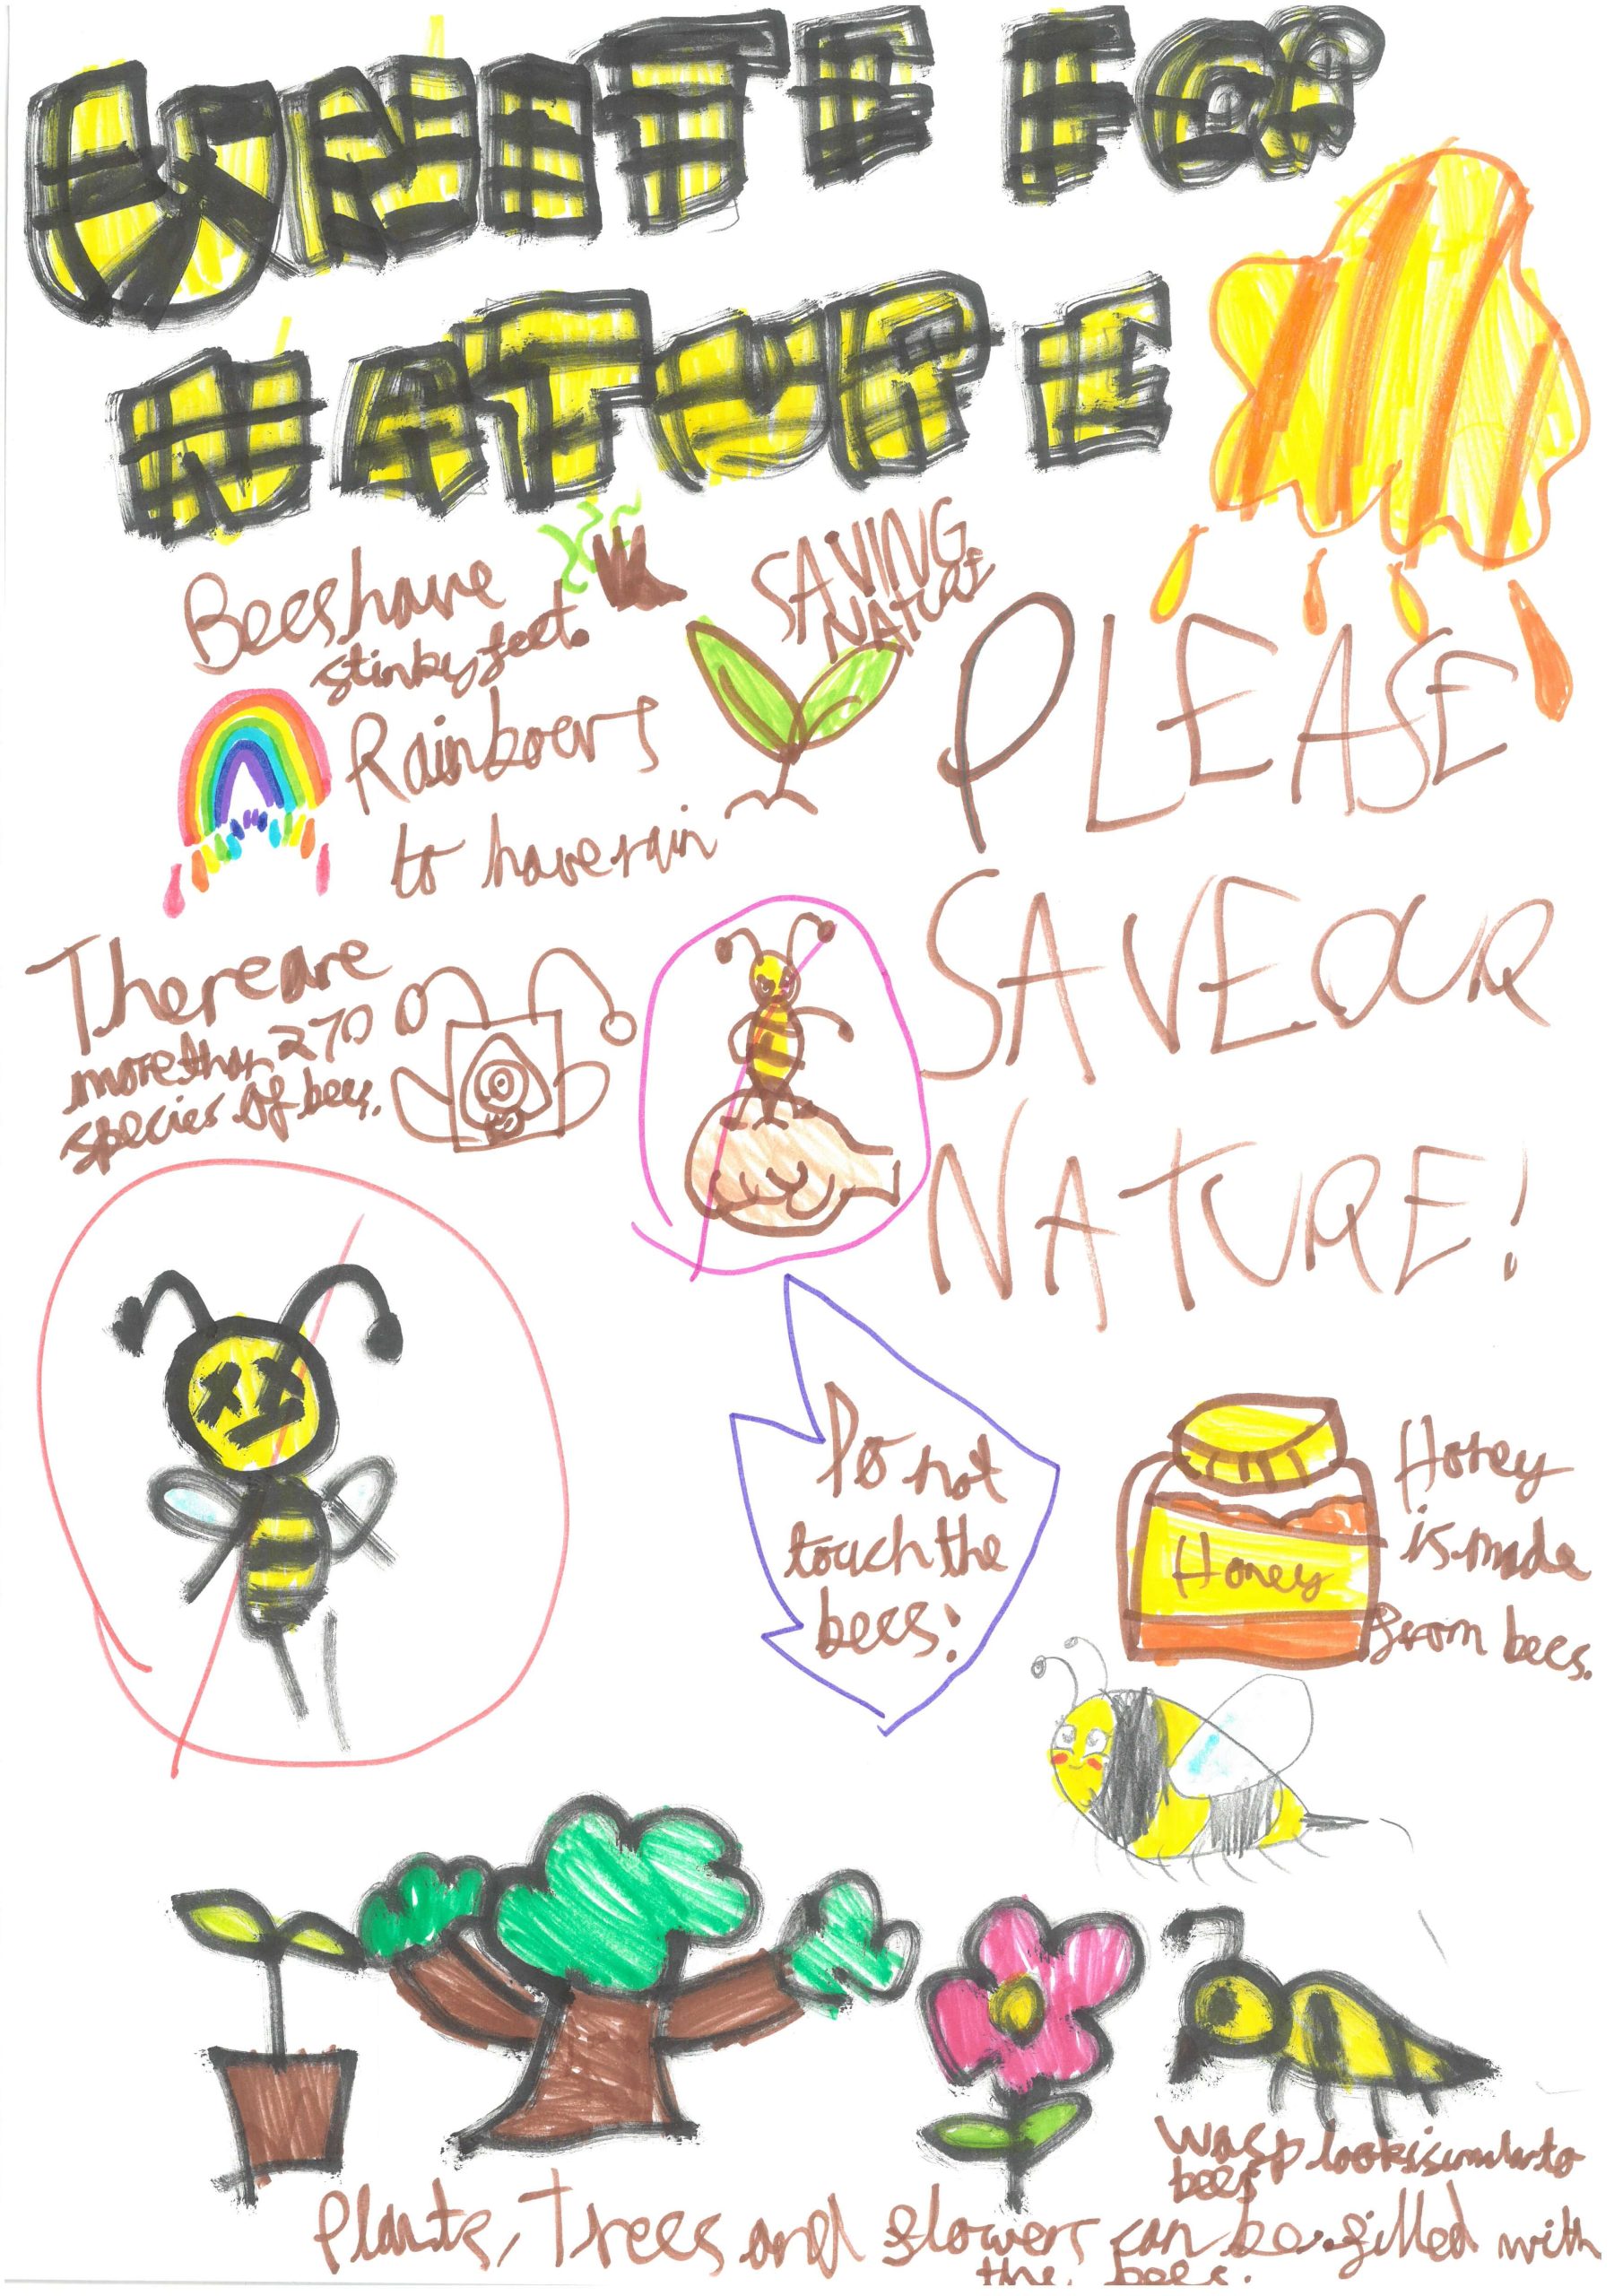 UNITE FOR
NATURE
Bees have
stinky feet.
SAVING
NATURE
Rainbows
to have rain
PLEASE
SAVE OUR
NATURE!
There are
more than 270
species of bees.
Do not
touch the
bees!
Honey
Honey
is made
from bees.
Wasp look similar to
bees
Plants, Trees and flowers can be filled with
the bees.